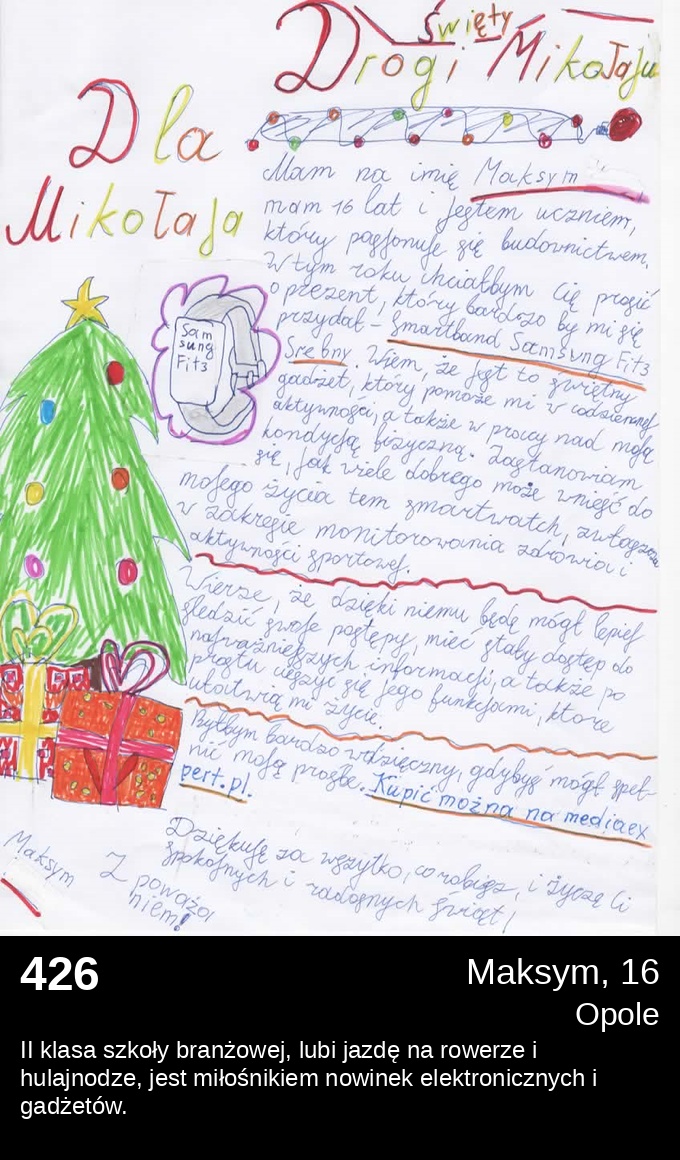 Święty
Drogi Mikołaju
Dla
Mikołaja
Mam na imię Maksym
mam 16 lat i jestem uczniem,
który pasjonuje się budownictwem.
W tym roku chciałbym Cię prosić
o prezent, który bardzo by mi się
przydał - Smartband Samsung Fit3
Srebny. Wiem, że jest to świetny
gadżet, który pomoże mi w codziennej
aktywności, a także w pracy nad moją
kondycją fizyczną. Zastanawiam
się, jak wiele dobrego może wnieść do
mojego życia ten smartwatch, zwłaszcza
w zakresie monitorowania zdrowia i
aktywności sportowej.
Sam
sung
Fit3
Wierzę, że dzięki niemu będę mógł lepiej
śledzić swoje postępy, mieć stały dostęp do
najważniejszych informacji, a także po
prostu cieszyć się jego funkcjami, które
ułatwią mi życie.
Byłbym bardzo wdzięczny, gdybyś mógł speł-
nić moją prośbę. Kupić można na mediaex
pert.pl.
Dziękuję za wszytko, co robisz, i życzę Ci
spokojnych i radosnych świąt!
Z poważa
niem!
Maksym
426
Maksym, 16
Opole
II klasa szkoły branżowej, lubi jazdę na rowerze i
hulajnodze, jest miłośnikiem nowinek elektronicznych i
gadżetów.